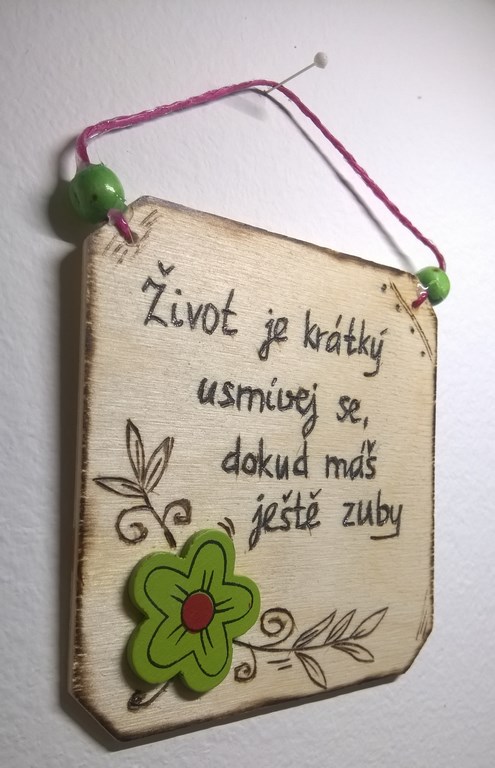 Život je krátký
usmívej se,
dokud máš
ještě zuby